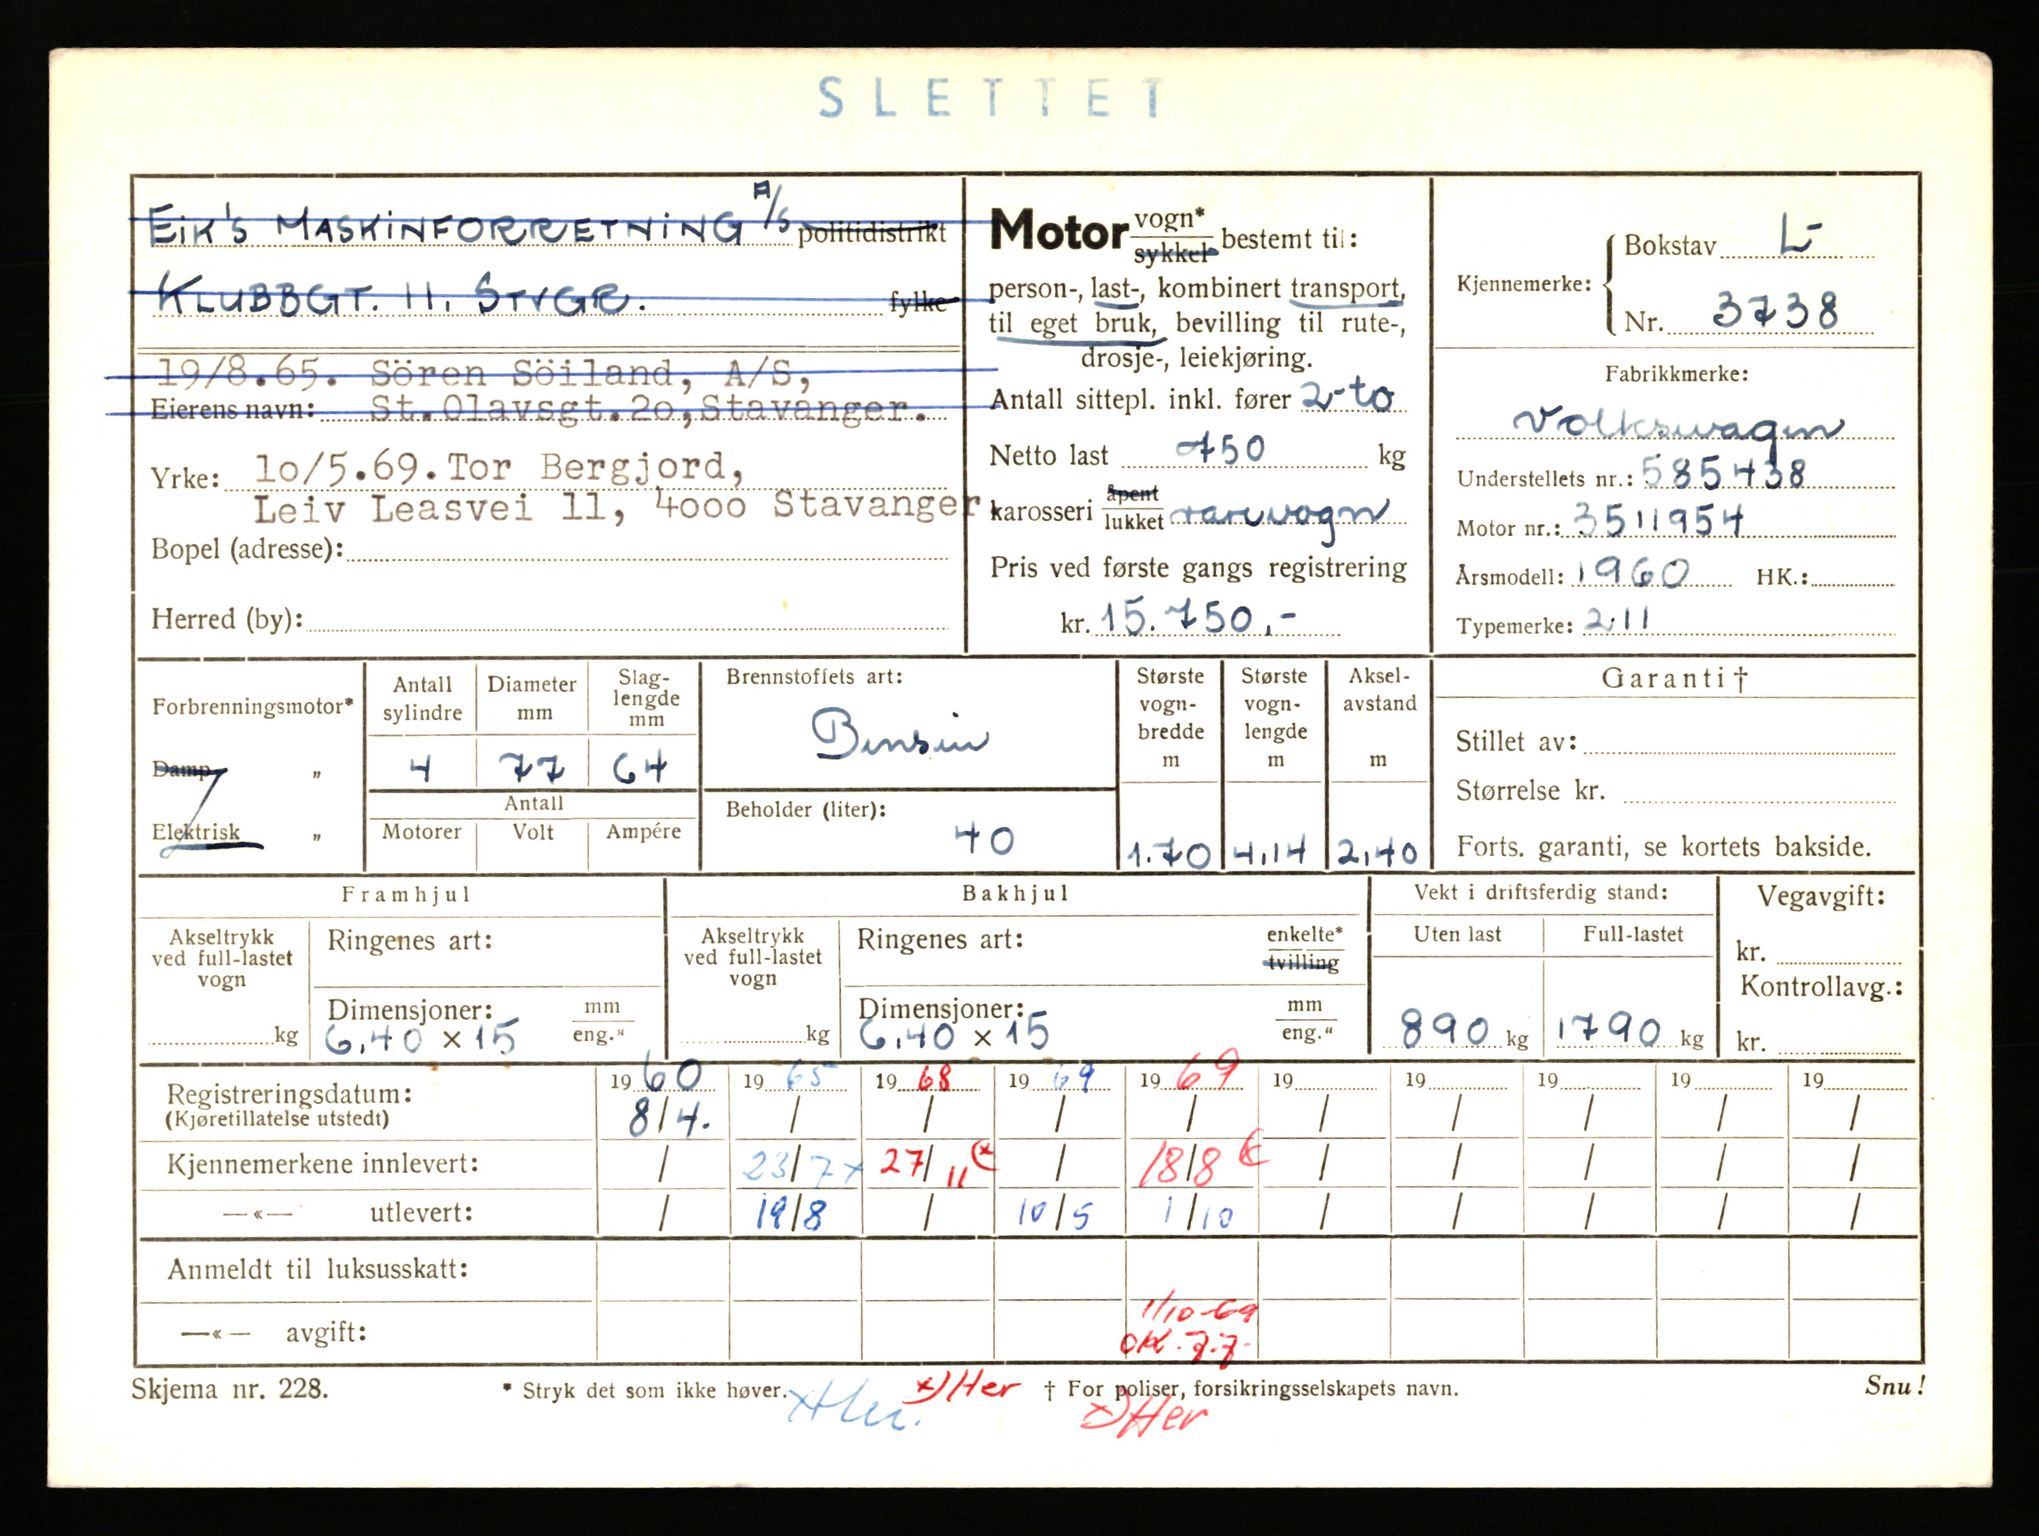 SLETTET
EiK'S MASKiNFORRETNiNG A/S politidistrikt
KLUBBGT. 11. STVGR. fylke
19/8.65. Sören Söiland, A/S,
Eierens navn: St.Olavsgt.2o,Stavanger.
Yrke: 1o/5.69.Tor Bergjord,
Leiv Leasvei 11, 4ooo Stavanger
Bopel (adresse):
Herred (by):
Motor vogn* sykkel bestemt til:
person-, last-, kombinert transport,
til eget bruk, bevilling til rute-,
drosje-, leiekjøring.
Antall sittepl. inkl. fører 2-to
Netto last 750 kg
karosseri åpent lukket varevogn
Pris ved første gangs registrering
kr. 15.750,-
Kjennemerke: Bokstav L-
Nr. 3738
Fabrikkmerke:
Volkswagen
Understellets nr.: 585438
Motor nr.: 3511954
Årsmodell: 1960 HK.:
Typemerke: 211
Forbrenningsmotor*
Damp „
Elektrisk „
Antall sylindre
Diameter mm
Slag-lengde mm
4 77 64
Antall
Motorer Volt Ampére
Brennstoffets art:
Bensin
Beholder (liter):
40
Største vogn-bredde m
1.70
Største vogn-lengde m
4,14
Aksel-avstand m
2,40
Garanti †
Stillet av:
Størrelse kr.
Forts. garanti, se kortets bakside.
Framhjul
Akseltrykk ved full-lastet vogn
kg
Ringenes art:
Dimensjoner: mm eng."
6,40 x 15
Bakhjul
Akseltrykk ved full-lastet vogn
kg
Ringenes art: enkelte* tvilling
Dimensjoner: mm eng."
6,40 x 15
Vekt i driftsferdig stand:
Uten last Full-lastet
890 kg 1790 kg
Vegavgift:
kr.
Kontrollavg.:
kr.
Registreringsdatum: 1960 1965 1968 1969 1969 19 19 19 19 19
(Kjøretillatelse utstedt) 8/4. / / / / / / / / /
Kjennemerkene innlevert: / 23/7 x 27/11 (x / 18/8 (x / / / / /
—«— utlevert: / 19/8 / 10/5 1/10 / / / / /
Anmeldt til luksusskatt:
1/10-69
—«— avgift: OK. J.J.
Skjema nr. 228. * Stryk det som ikke høver. x) Her † For poliser, forsikringsselskapets navn. Snu!
x Her. x) Her